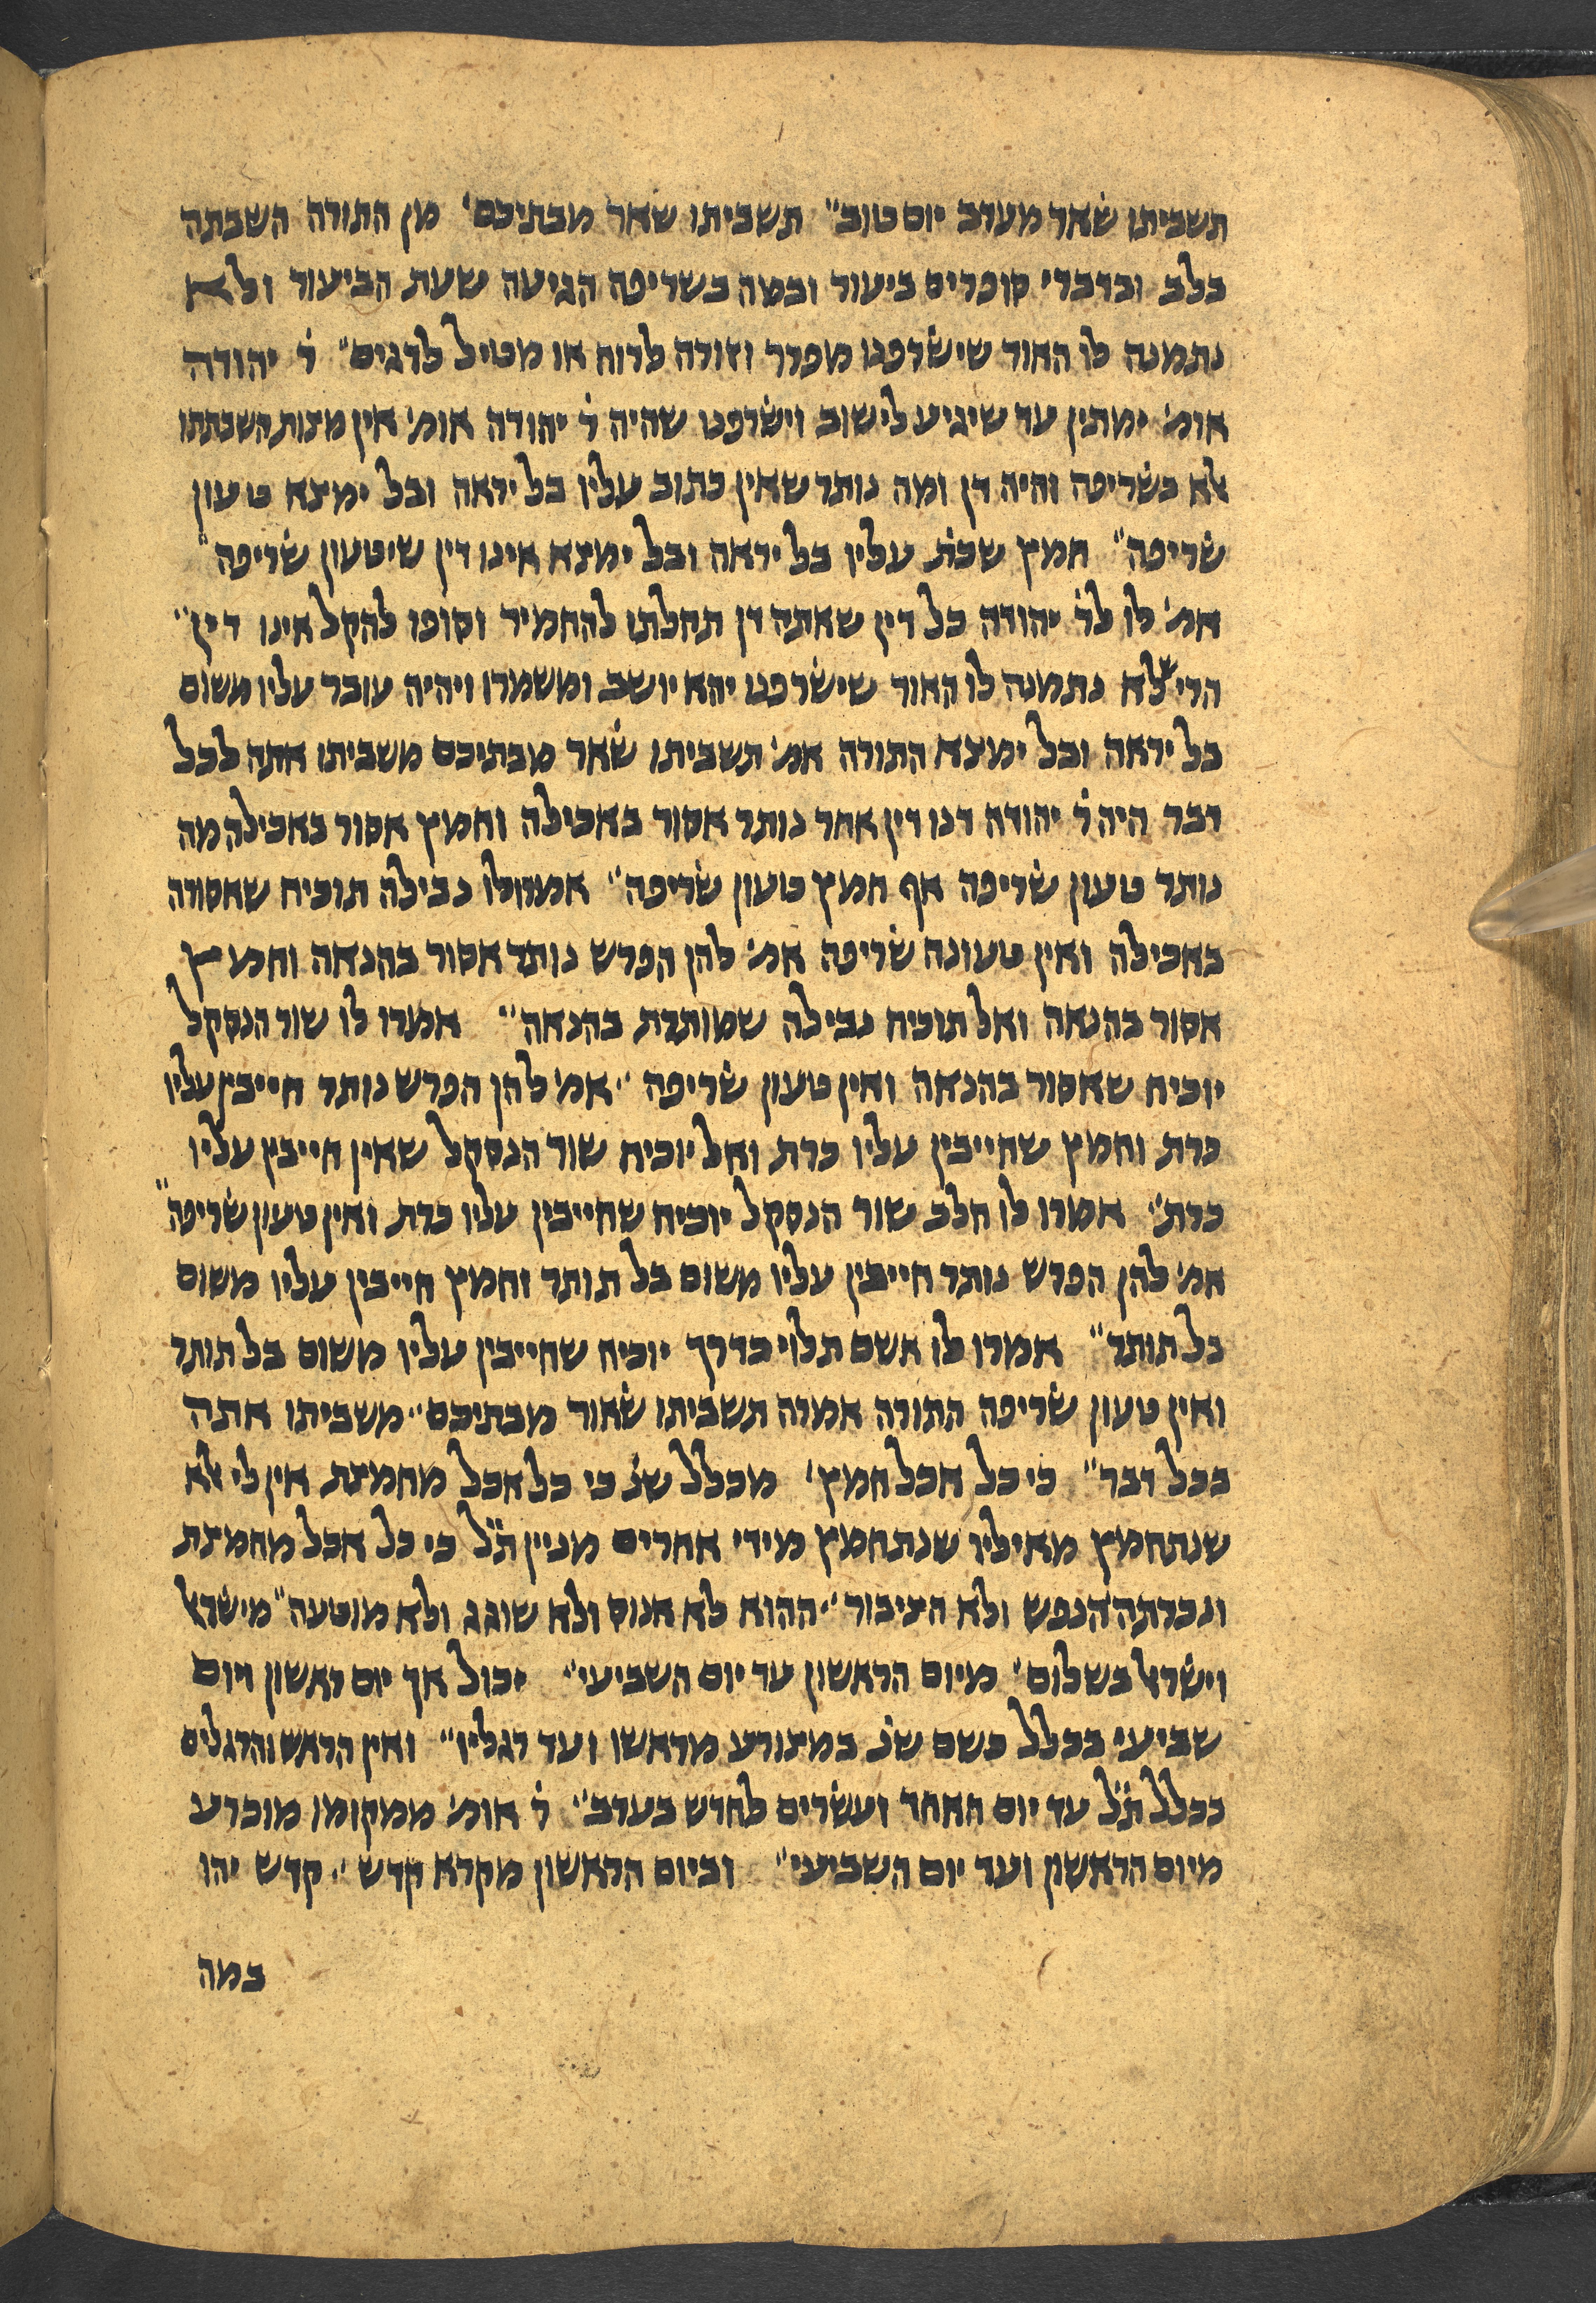 תשביתו שׄאר מערב יום טוב״ תשביתו שאר מבתיכם׳ מן התורה השבתה
בלב ובדברי סופרים ביעור ובמה בשריפה הגיעה שעת הביעור ולא
נתמנה לו האור שישׄרפנו מפרר וזורה לרוח או מטיל לדגים״ ר׳ יהודה
אומ׳ ימתין עד שיגיע לישוב וישׄרפנו שהיה ר׳ יהודה אומ׳ אין מצות השבתתו
לא בשׄריפה והיה דן ומה נותר שאין כתוב עליו בל יראה ובל ימצא טעון
שׄריפה״ חמץ שכת׳ עליו בל יראה ובל ימצא אינו דין שיטעון שׄריפה״
אמ׳ לו לר׳ יהודה כל דין שאתה דן תחלתו להחמיר וסופו להקל אינו דין״
הרי שלא נתמנה לו האור שישׄרפנו יהא יושב ומשמרו ויהיה עובר עליו משום
בל יראה ובל ימצא התורה אמ׳ תשביתו שׄאר מבתיכם משביתו אתה לכל
דבר היה ר׳ יהודה דנו דין אחר נותר אסור באכילה וחמץ אסור באכילה מה
נותר טעון שׄריפה אף חמץ טעון שׄריפה״ אמרו לו נבילה תוכיח שאסורה
באכילה ואין טעונה שׄריפה אמ׳ להן הפרש נותר אסור בהנאה וחמץ
אסור בהנאה ואל תוכיח נבילה שמותרת בהנאה״ אמרו לו שור הנסקל
יוכיח שאסור בהנאה ואין טעון שׄריפה״ אמ׳ להן הפרש נותר חייבין עליו
כרת וחמץ שחייבין עליו כרת ואל יוכיח שור הנסקל שאין חייבין עליו
כרת״ אמרו לו חלב שור הנסקל יוכיח שחייבין עליו כרת ואין טעון שׄריפה״
אמ׳ להן הפרש נותר חייבין עליו משום בל תותר וחמץ חייבין עליו משום
בל תותר״ אמרו לו אשם תלוי כדרך יוכיח שחייבין עליו משום בל תותר
ואין טעון שׄריפה התורה אמרה תשביתו שׄאור מבתיכם״ משביתו אתה
בכל דבר״ כי כל אכל חמץ׳ מכלל שנ׳ כי כל אכל מחמצת אין לי אלא
שנתחמץ מאיליו שנתחמץ מידי אחרים מניין ת״ל כי כל אכל מחמצת
ונכרתה הנפש ולא הציבור״ ההוא לא אנוס ולא שוגג ולא מוטעה״ מישׄראל
וישׄראל בשלום״ מיום הראשון עד יום השביעי״ יכול אך יום ראשון ויום
שביעי בכלל כשם שנ׳ במצורע מראשו ועד רגליו״ ואין הראש והרגלים
בכלל ת״ל עד יום האחד ועשׄרים לחדש בערב״ ר׳ אומ׳ ממקומו מוכרע
מיום הראשון ועד יום השביעי״ וביום הראשון מקרא קדש״ קדש יהו
במה